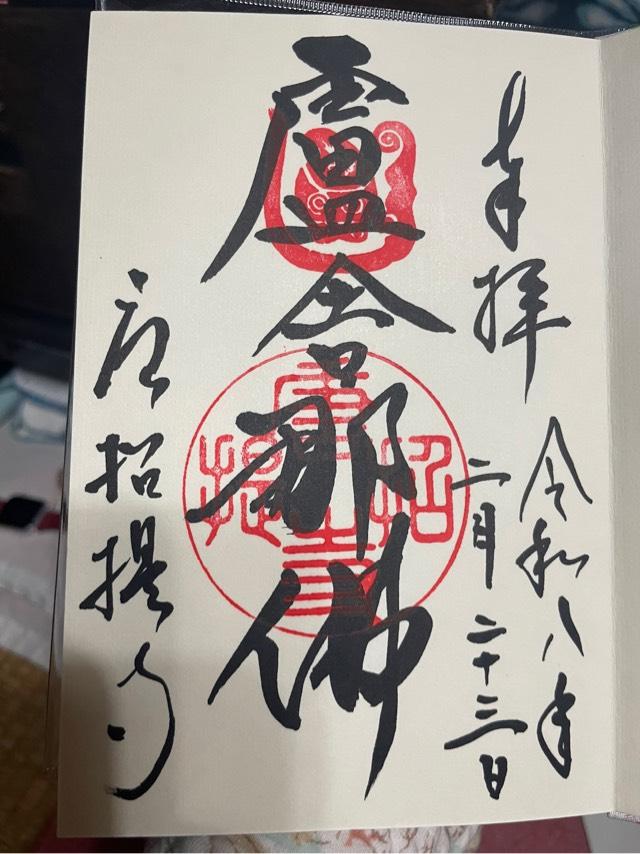 奉拝
令和八年
二月二十三日
盧舎那佛
唐招提寺
唐招提寺